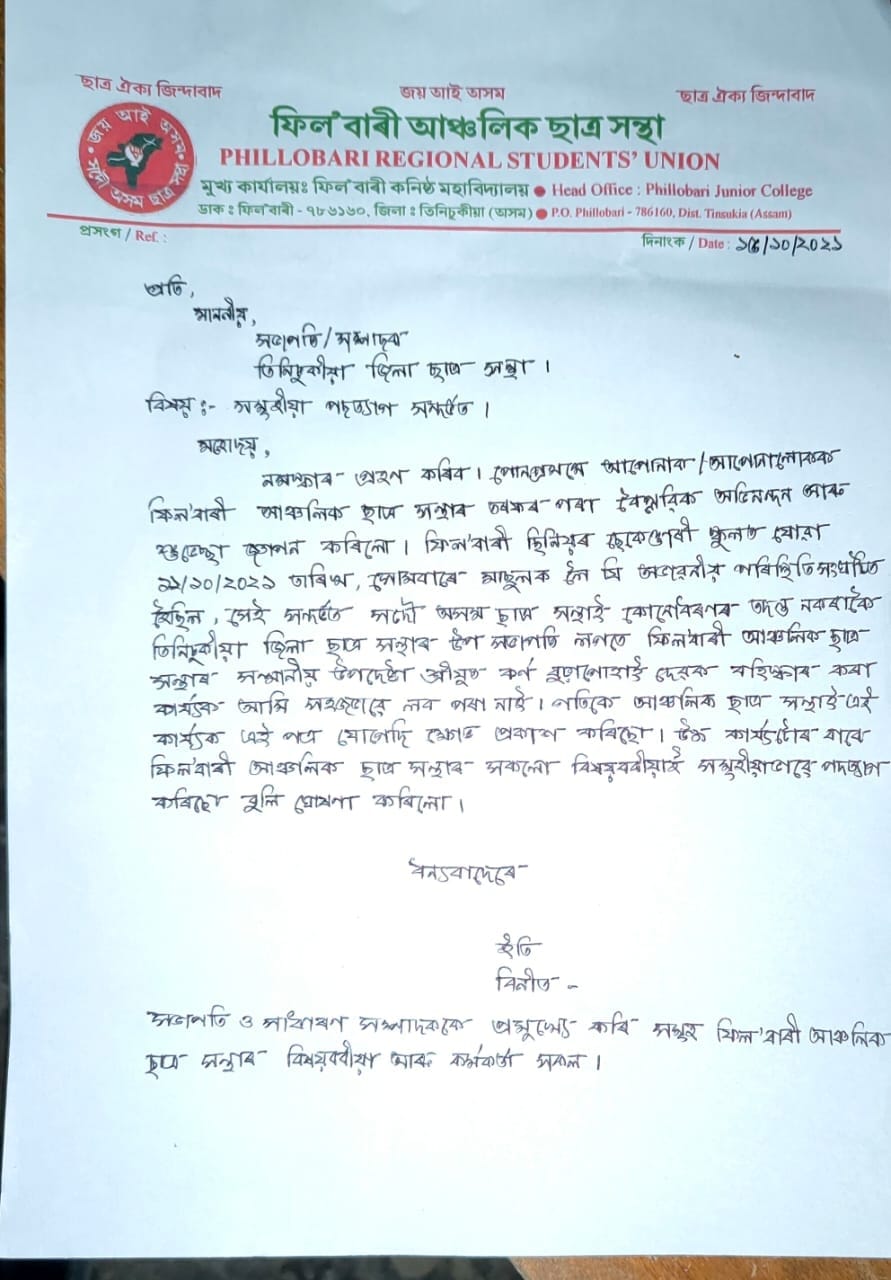 ছাত্ৰ ঐক্য জিন্দাবাদ জয় আই অসম ছাত্ৰ ঐক্য জিন্দাবাদ
জয় আই অসম
সদৌ অসম ছাত্ৰ সন্থা
ফিল'বাৰী আঞ্চলিক ছাত্ৰ সন্থা
PHILLOBARI REGIONAL STUDENTS' UNION
মুখ্য কাৰ্যালয়ঃ ফিল'বাৰী কনিষ্ঠ মহাবিদ্যালয় ● Head Office : Phillobari Junior College
ডাক ঃ ফিল'বাৰী - ৭৮৬১৬০, জিলা ঃ তিনিচুকীয়া (অসম) ● P.O. Phillobari - 786160, Dist. Tinsukia (Assam)
প্ৰসংগ / Ref. :
দিনাংক / Date : /১০/২০২১
প্ৰতি,
মাননীয়,
সভাপতি/সম্পাদক
তিনিচুকীয়া জিলা ছাত্ৰ সন্থা ।
বিষয় ঃ- সমূহীয়া পদত্যাগ সন্দৰ্ভত ।
মহোদয়,
নমস্কাৰ গ্ৰহণ কৰিব । পোনপ্ৰথমে আপোনাক/আপোনালোকক
ফিল'বাৰী আঞ্চলিক ছাত্ৰ সন্থাৰ তৰফৰ পৰা বৈপ্লৱিক অভিনন্দন আৰু
শুভেচ্ছা জ্ঞাপন কৰিলো । ফিল'বাৰী ছিনিয়ৰ ছেকেণ্ডাৰী স্কুলত যোৱা
১১/১০/২০২১ তাৰিখ, সোমবাৰে মাছুলক লৈ যি অভাৱনীয় পৰিস্থিতি সংঘটিত
হৈছিল, সেই সন্দৰ্ভত সদৌ অসম ছাত্ৰ সন্থাই কোনোধৰণৰ তদন্ত নকৰাকৈ
তিনিচুকীয়া জিলা ছাত্ৰ সন্থাৰ উপ সভাপতি লগতে ফিল'বাৰী আঞ্চলিক ছাত্ৰ
সন্থাৰ সন্মানীয় উপদেষ্টা শ্ৰীযুত কৰ্ণ বুঢ়াগোহাঁই দেৱক বহিষ্কাৰ কৰা
কাৰ্য্যক আমি সহজভাৱে লব পৰা নাই । গতিকে আঞ্চলিক ছাত্ৰ সন্থাই এই
কাৰ্য্যক এই পত্ৰ যোগেদি ক্ষোভ প্ৰকাশ কৰিছো । উক্ত কাৰ্য্যটোৰ বাবে
ফিল'বাৰী আঞ্চলিক ছাত্ৰ সন্থাৰ সকলো বিষয়ববীয়াই সমূহীয়াভাৱে পদত্যাগ
কৰিছো বুলি ঘোষণা কৰিলো ।
ধন্যবাদেৰে-
ইতি
বিনীত -
সভাপতি ও সাধাৰণ সম্পাদককে প্ৰমূখ্যে কৰি সমূহ ফিল'বাৰী আঞ্চলিক
ছাত্ৰ সন্থাৰ বিষয়ববীয়া আৰু কৰ্মকৰ্তা সকল ।